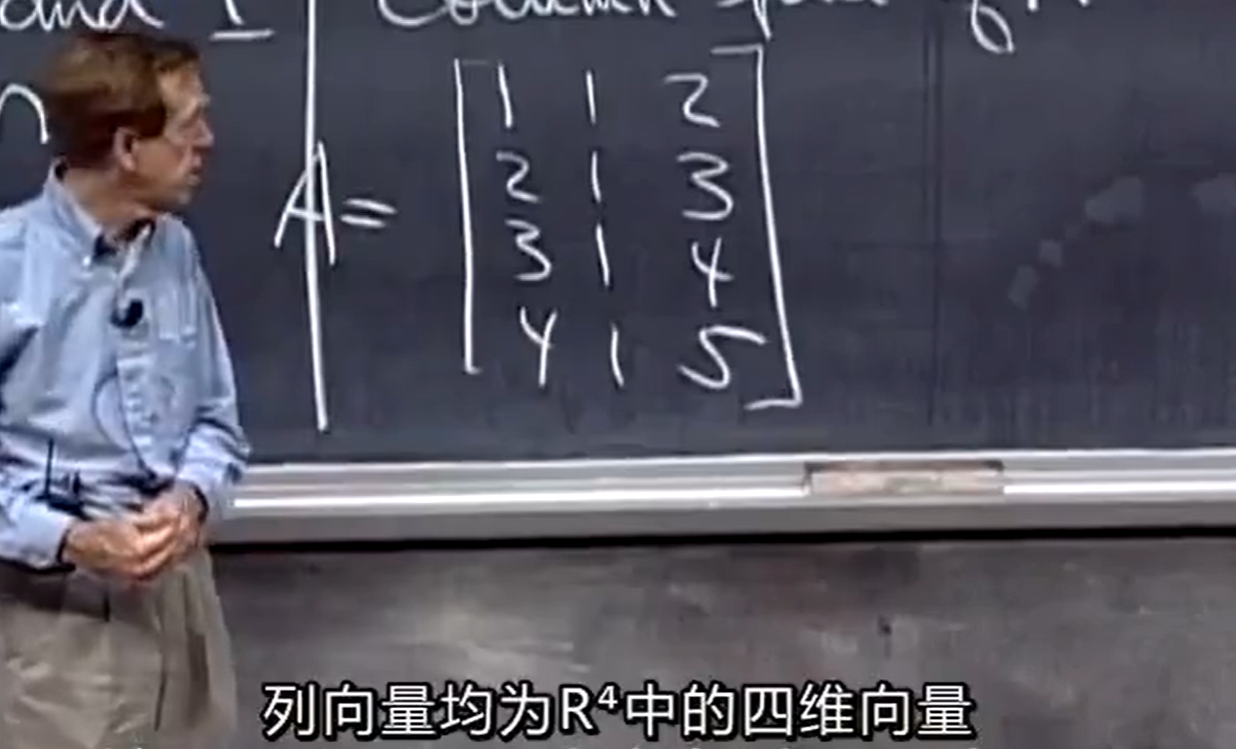 and I
Column space of A
n
A =
1 1 2
2 1 3
3 1 4
4 1 5
列向量均为R⁴中的四维向量